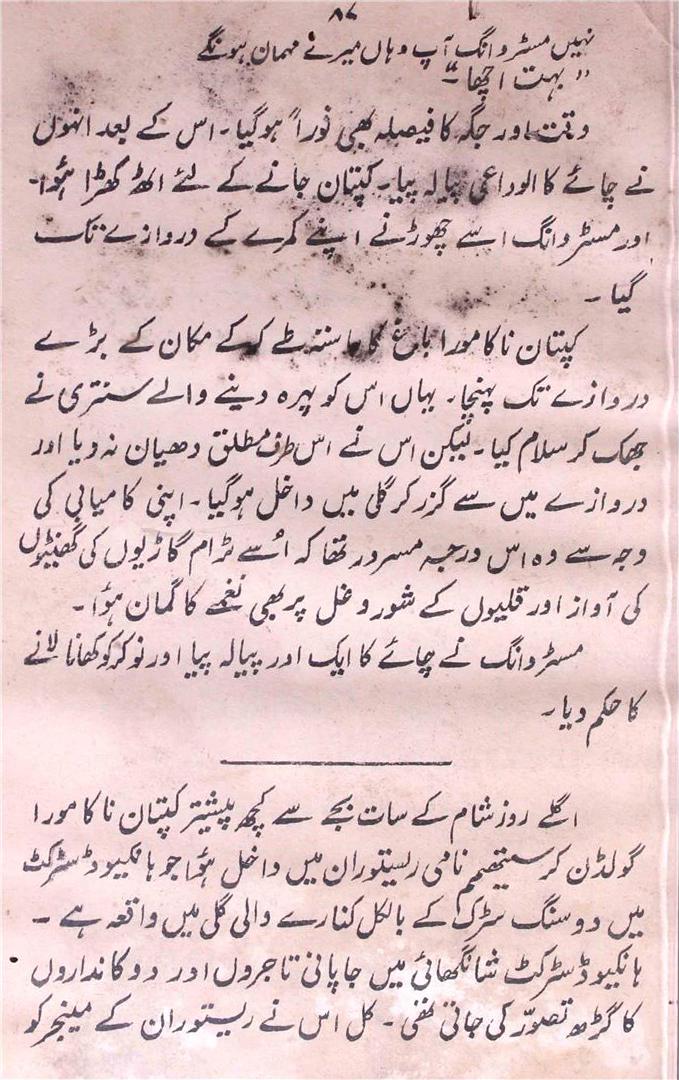 ۸۷
نہیں مسٹر وانگ آپ وہاں میرے مہمان ہونگے
" بہت اچھا۔"
وقت اور جگہ کا فیصلہ بھی فوراً ہوگیا۔ اس کے بعد انہوں
نے چائے کا الوداعی پیالہ پیا۔ کپتان جانے کے لئے اٹھ کھڑا ہوُا۔
اور مسٹر وانگ اسے چھوڑنے اپنے کمرے کے دروازے تک
گیا۔
کپتان ناکامورا باغ کا راستہ طے کرکے مکان کے بڑے
دروازے تک پہنچا۔ یہاں اس کو پہرہ دینے والے سنتری نے
جھک کر سلام کیا۔ لیکن اس نے اس طرف مطلق دھیان نہ دیا اور
دروازے میں سے گزر کر گلی میں داخل ہوگیا۔ اپنی کامیابی کی
وجہ سے وہ اس درجہ مسرور تھا کہ اُسے ٹرام گاڑیوں کی گھنٹیوں
کی آواز اور قلیوں کے شور و غل پر بھی نغمے کا گمان ہوُا۔
مسٹر وانگ نے چائے کا ایک اور پیالہ پیا اور نوکر کو کھانا لانے
کا حکم دیا۔
اگلے روز شام کے سات بجے سے کچھ پیشتر کپتان ناکامورا
گولڈن کرستھیمم نامی ریستوران میں داخل ہوُا جو ہانکیوڈسٹرکٹ
میں دوسنگ سڑک کے بالکل کنارے والی گلی میں واقعہ ہے ۔
ہانکیوڈسٹرکٹ شانگھائی میں جاپانی تاجروں اور دوکانداروں
کا گڑھ تصوّر کی جاتی تھی ۔ کل اس نے ریستوران کے مینجر کو